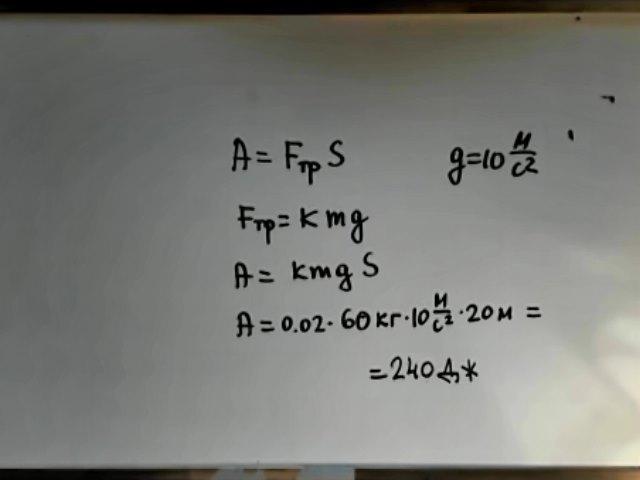 A = Fтр S g=10 м/с²
Fтр = kmg
A = kmg S
A = 0.02 · 60 кг · 10 м/с² · 20 м =
= 240 Дж